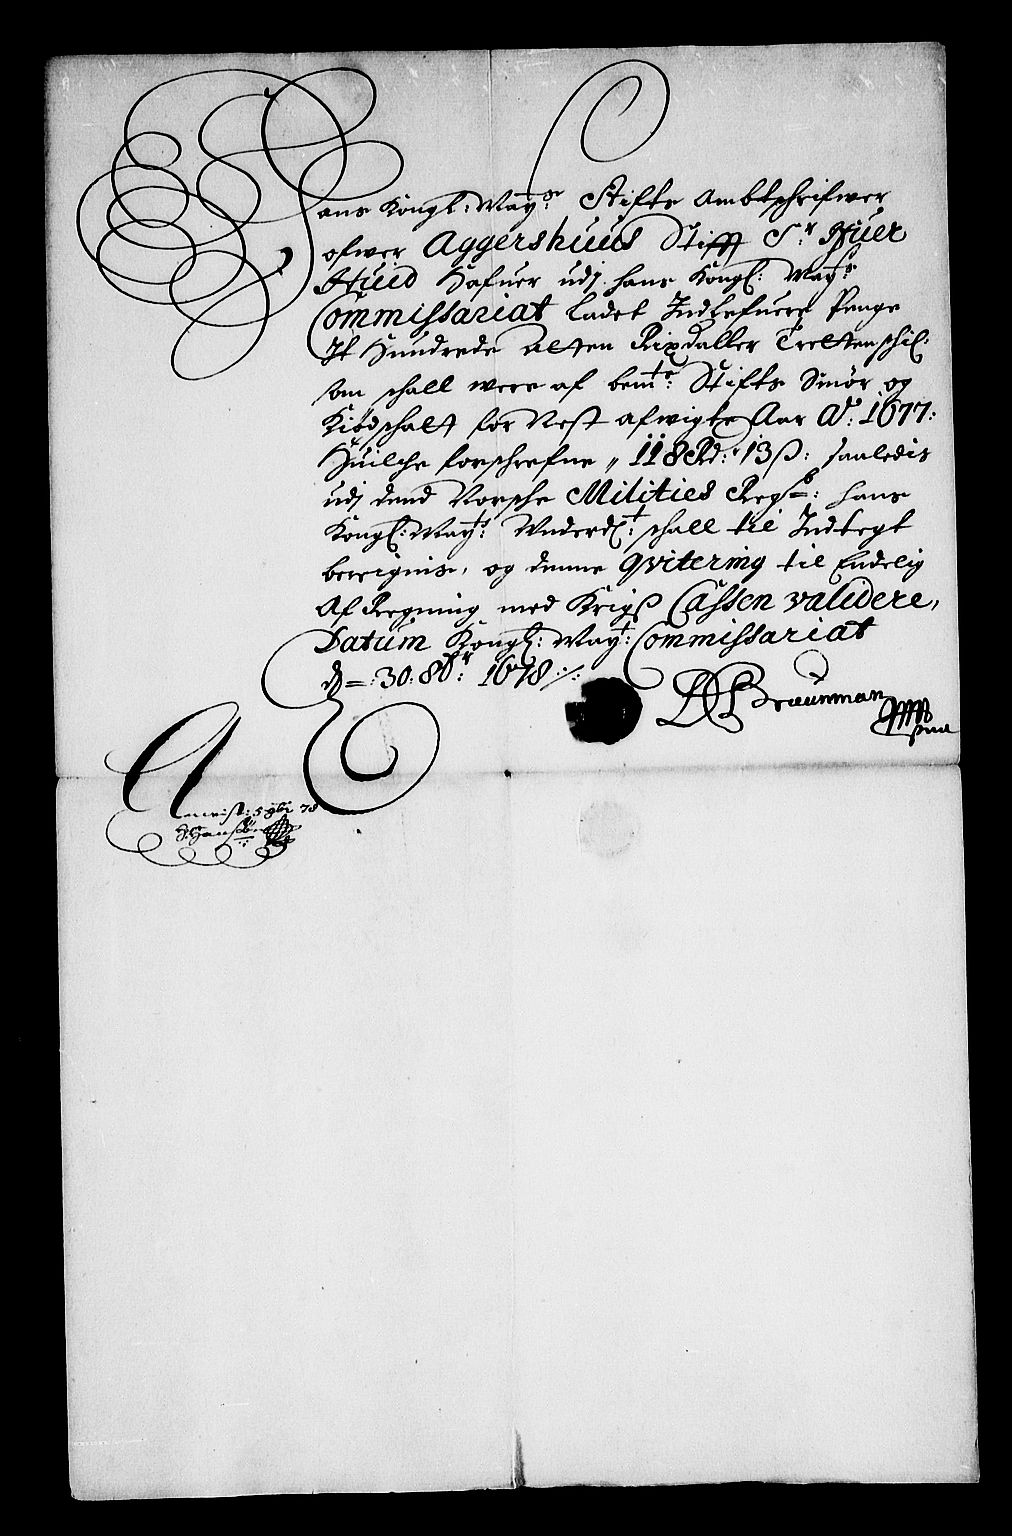 Hans Kongl: Mayts Stifts Ambtschrifwer
ofwer Aggershuus Stifft Sr Ifuer
Huid Hafuer udj hans Kongl: Mayts
Commissariat ladet Indlefuere Penge
It Hundrede Atten Rixdaller Tretten schil:
som schall were af bemte Stifts Smør og
Kiødschatt for Nest afwigte Aar Ao: 1677:
Huilche forschrefne „ 118 Rd: 13 ß: saaledis
udj dend Norsche Milities Regsb: hans
Kongl: Mayts: Underdt: schall til Indtegt
beregnis, og denne Qvitering til Endelig
Af Regning med Krigß Cassen validere,
Datum Kongl: Mayt: Commissariat
d =: 30: 8br: 1678 ./.
Braunman
Anvist: 5 9br 78
H: Hansen